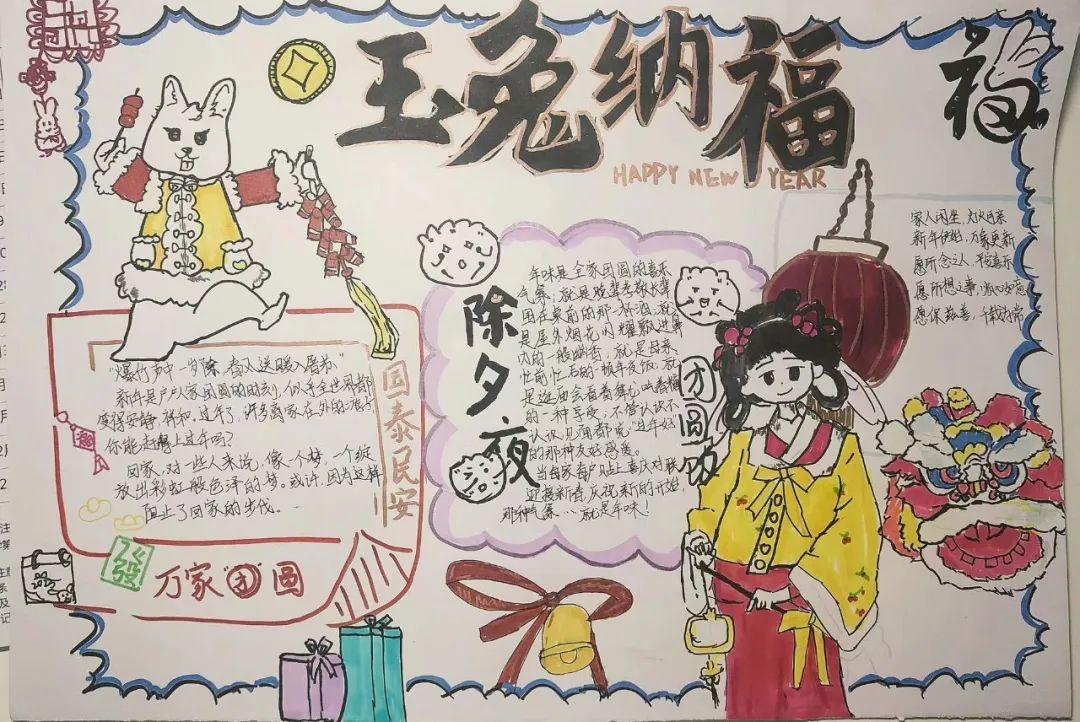 玉兔纳福
HAPPY NEW YEAR
福
家人闲坐，灯火可亲
新年伊始，万象更新
愿所念之人，平安喜乐
愿所想之事，顺心如意
愿保兹善，千载为常
"爆竹声中一岁除，春风送暖入屠苏"
新年是户户家团圆的时刻，似乎全世界都
变得安静，祥和，过年了，许多离家在外的游子
你能赶得上过年吗？
回家，对一些人来说，像一个梦，一个绽
放出彩虹般色泽的梦。或许，因为这样
阻止了回家的步伐。
国泰民安
發
万家"团"圆
除夕夜
年味是全家团圆的喜乐
气氛；就是晚辈老都长辈
围在桌前的那一杯酒，就
是屋外烟花闪耀飘进事
内的一股幽香，就是母亲
忙前忙后的一板年夜饭，就
的一种享受，不管认识不
认识，见面都说"过年好"
的那种友好感度。
当每家每户贴上喜庆对联
迎接新春，庆祝新的开始，
那种气氛……就是年味！
团圆